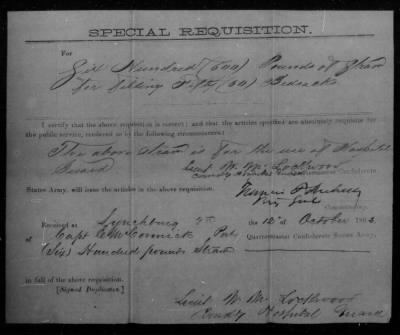 SPECIAL REQUISITION.
For
Six Hundred (600) Pounds of Straw
for filling Fifty (50) Bedsacks
I certify that the above requisition is correct; and that the articles specified are absolutely requisite for
the public service, rendered so by the following circumstances:
The above Straw is for the use of Hospital
Guard
Lieut W. M. Lockwood
Comdg Hospital Guard
Confederate
States Army, will issue the articles in the above requisition.
Commanding.
Received at Lynchburg the 12th of October 186
of Capt E McCormick Quartermaster Confederate States Army,
(Six) Hundred pounds Straw
in full of the above requisition.
[Signed Duplicates.]
Lieut W. M. Lockwood
Comdg Hospital Guard